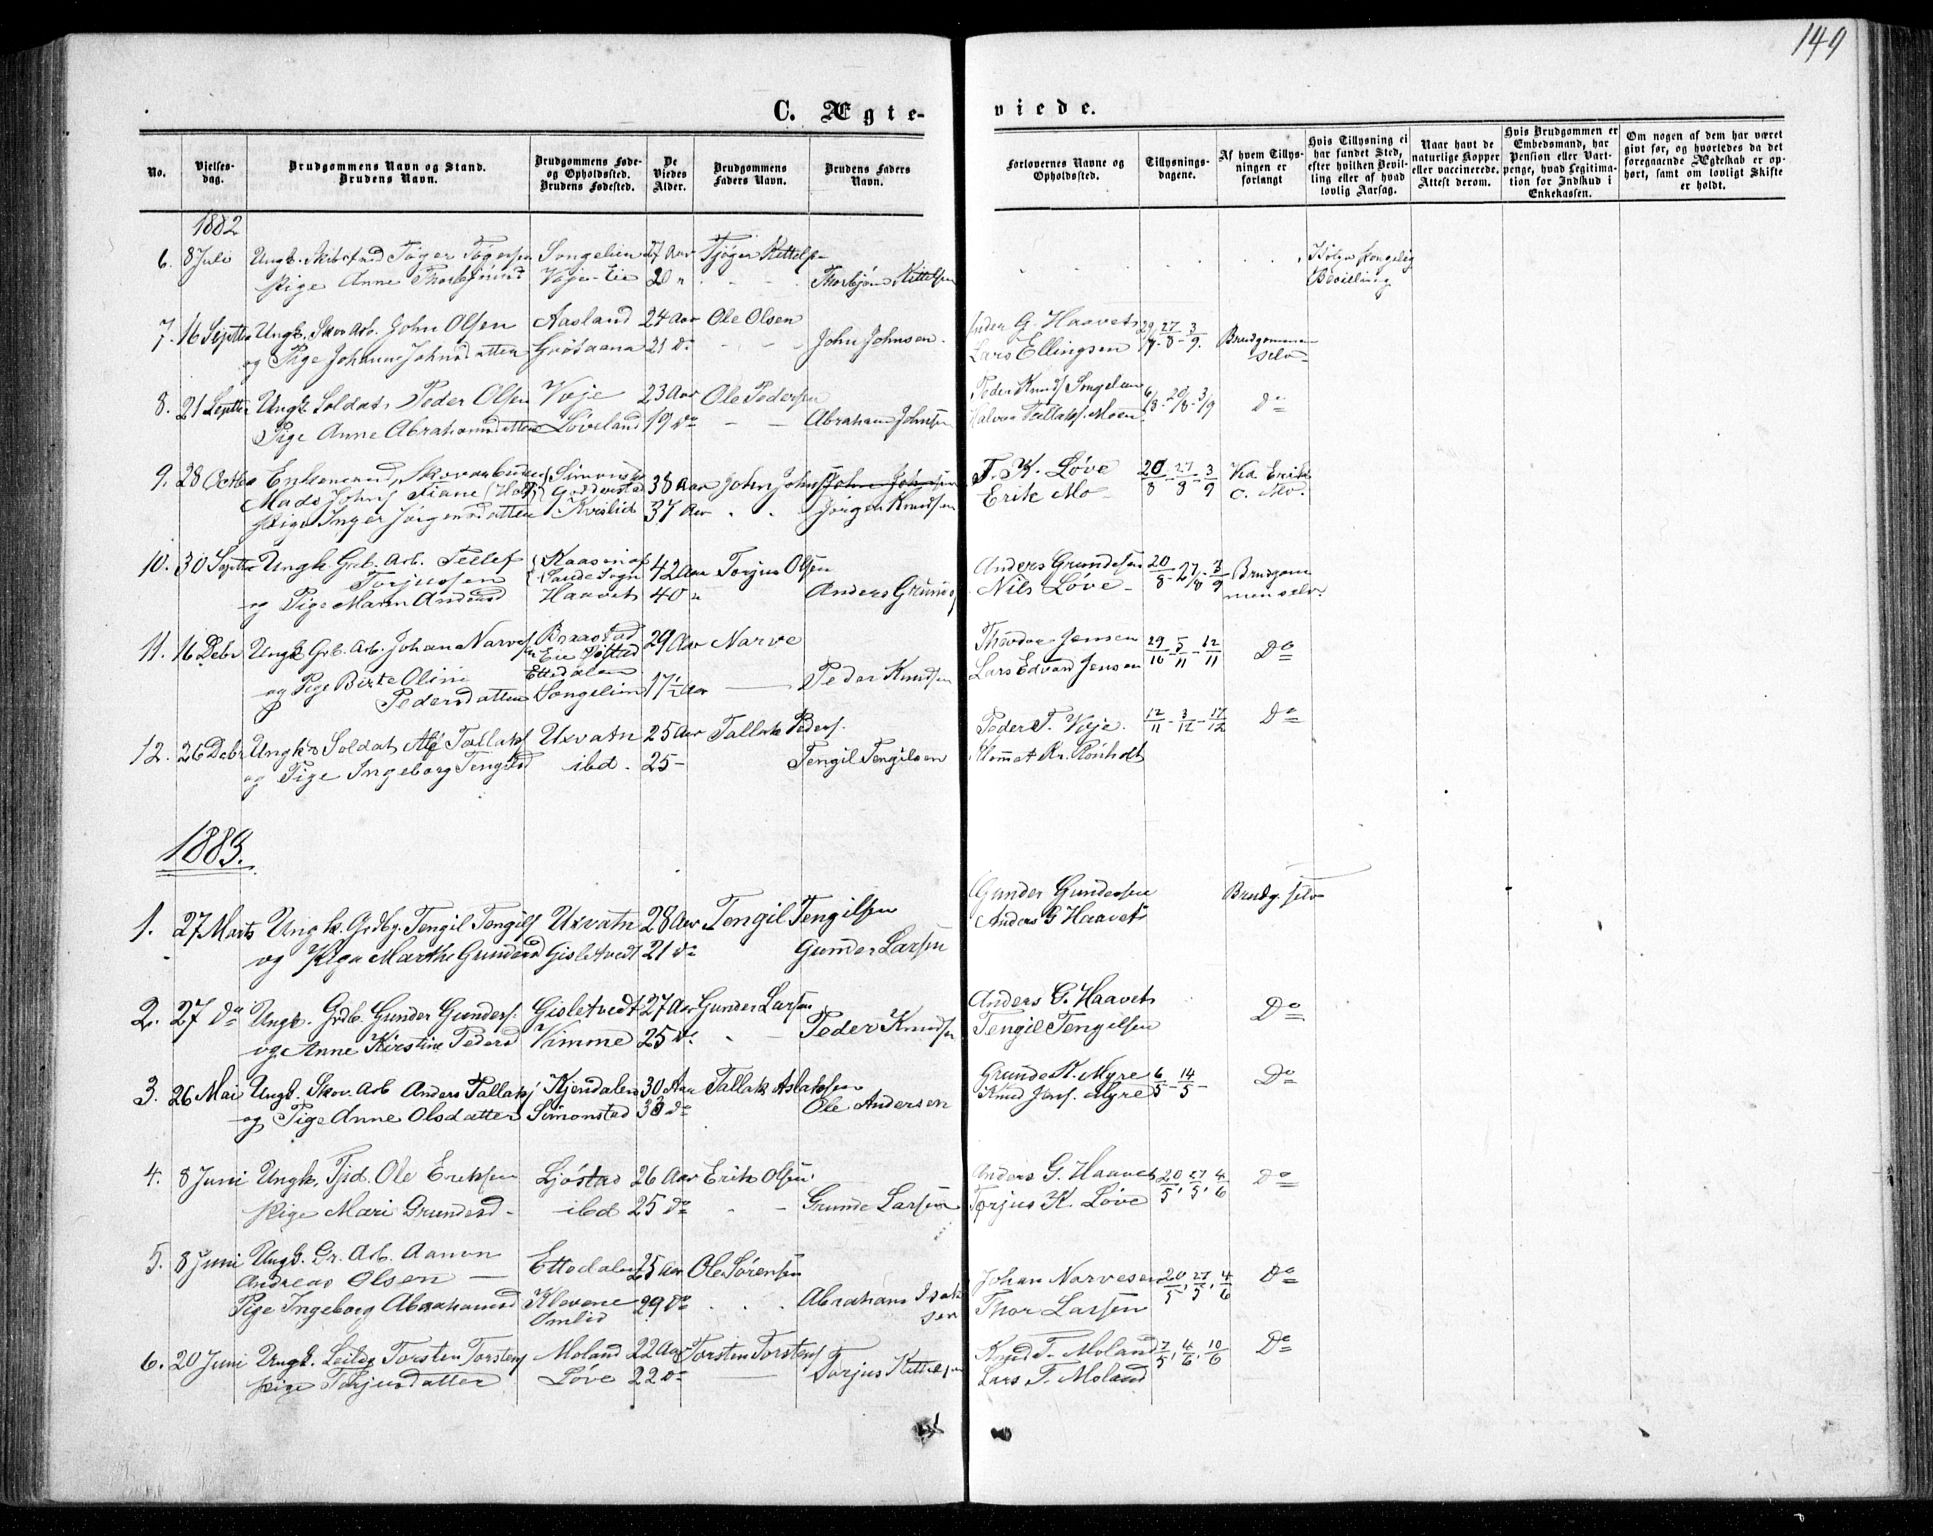 149
C. Ægte-
viede.
No.
Vielses-
dag.
Brudgommens Navn og Stand.
Brudens Navn.
Brudgommens Føde-
og Opholdssted.
Brudens Fødested.
De
Viedes
Alder.
Brudgommens
Faders Navn.
Brudens Faders
Navn.
Forlovernes Navne og
Opholdssted.
Tillysnings-
dagene.
Af hvem Tillys-
ningen er
forlangt
Hvis Tillysning ei
har fundet Sted,
efter hvilken Bevil-
ling eller af hvad
lovlig Aarsag.
Naar havt de
naturlige Kopper
eller vaccinerede.
Attest derom.
Hvis Brudgommen er
Embedsmand, har
Pension eller Vart-
penge, hvad Legitima-
tion for Indskud i
Enkekassen.
Om nogen af dem har været
gift før, og hvorledes da det
foregaaende Ægteskab er op-
hørt, samt om lovligt Skifte
er holdt.
1882
6. 8 Juli Ungk. Tøger Tøgersen Songelien 27 Aar Tjøger Kittels
Pige Anne Vøje-Eie 20 " Thorbjørn Kittelsen
Kongelig
Bevilling
7. 16 Septbr Ungk. Skov Arb. John Olsen Aasland 24 Aar Ole Olsen G. Haavets 27/8 - 3/9. Brudgommen
og Pige Johanne Johnsdatter 21 Do John Johnsen. Lars Ellingsen selv
8. 21 Septbr Ungk. Soldat Peder Olsen Vøje 23 Aar Ole Pedersen Peder Knuds Songelien 3/9 Do
Pige Anne Abrahamsdatter Løveland 19 Do Abraham Johnsen Moen
9. 28 Octbr Enkemand, Skovarbeider 38 Aar John Johns John Johnsen T. K. Løve 20/8 - 27/8 - 3/9 Erik
Mads Johns Fiane Erik Mo
Pige Inger Jørgensdatter Kveslid 37 Aar Jørgen Knudsen
10. 30 Septbr Ungk. Grb. Arb. Tellef 42 Aar Torjus Olsen Anders Grundesen 20/8 - 27/8 - 3/9 Brudgom
Torjussen Sande Sogn Nils Løve men selv.
og Pige Maren Haavet 40 " Anders
11. 16 Debr Ungk. Grb. Arb. Johan Narves Braastad 29 Aar Narve Jensen 29/10 - 5/11 - 12/11 Do
og Pige Birte Oline Ettedalen Lars Edvard Jensen
Pedersdatter Songelien 17½ Aar Peder Knudsen
12. 26 Debr Ungk. Soldat Alf Tallaks Uxvatn 25 Aar Tallak Peders. Peder T. Vøje. 12/11 - 3/12 - 17/12 Do
og Pige Ingeborg Tengilsd ibd. 25 - Tengil Tengilsen Kr. Rønholt
1883.
1. 27 Marts Ungk. Grdbg. Tengil Tengils Uxvatn 28 Aar Tengil Tengilsen Gunder Gundersen Brudg. selv
og Pige Marthe Gundersd Gisletvedt 21 Do Gunder Larsen Anders G Haavets
2. 27 Do Ungk. Grdb. Gunder Gunders. Gisletvedt 27 Aar Gunder Larsen Anders G. Haavets Do
og Anne Kirstine Pedersd Vimme 25 Do Peder Knudsen Tengil Tengilsen
3. 26 Mai Ungk. Skov. Arb Anders Tallaks Kjendalen 30 Aar Tallak Aslaksen Grunde K. Myre 6/5 - 14/5 - Do
og Pige Anne Olsdatter Simonstad 33 Do Ole Andersen Knud Jens. Myre
4. 8 Juni Ungk. Tjd. Ole Eriksen Ljøstad 26 Aar Erik Olsen Anders G. Haavets 20/5, 27/5, 4/6 Do
Pige Mari Grundesd - ibd 25 Do Grunde Larsen Torjus K. Løve
5. 8 Juni Ungk. Gr. Arb. Aanon Ettedalen 25 Aar Ole Sørensen Johan Narvesen 20/5, 27/5, 4/6 Do
Andreas Olsen
Pige Ingeborg Abrahamsd Klevene 29 Do Abraham Isak Thor Larsen
Omlid sen
6. 20 Juni Ungk. Torsten Torstens Moland 22 Aar Torsten Torstens Knud T. Moland 7/5, 4/6, 10/6 Do
Pige Torjusdatter Løve 22 Do Torjus Kittelsen Lars T. Moland